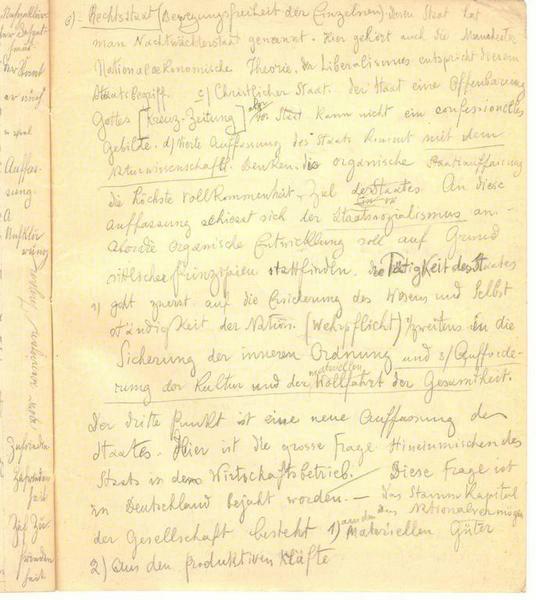 b) = Rechtsstaat (Bewegungsfreiheit der Einzelnen). Diesen Staat hat
man Nachtwächterstaat genannt. Hier gehört auch die Manchester
Nationalœkonomische Theorie. Der Liberalismus entspricht diesem
Staatsbegriff. c) Christlicher Staat. der Staat eine Offenbarung
Gottes [Kreuz-Zeitung] aber der Staat kann nicht ein confessionelles
Gebilde. d) Vierte Auffassung des Staats kommt mit dem
Naturwissenschaftl. Denken. die organische Staatsauffassung
die höchste Vollkommenheit, Ziel des Staates An diese
Auffassung schliesst sich der Staatssozialismus an.
Also die organische Entwicklung soll auf Grund
sittlicher Prinzipien stattfinden. die Tätigkeit des Staates
1) geht zuerst auf die Sicherung des Wesens und Selbst
ständigkeit der Nation. (Wehrpflicht) 2) zweitens in die
Sicherung der inneren Ordnung und 3) Aufforde-
rung der Kultur und der materiellen Wohlfahrt der Gesamtheit.
Der dritte Punkt ist eine neue Auffassung des
Staates. Hier ist die grosse Frage Hineinmischen des
Staats in dem Wirtschaftsbetrieb. Diese Frage ist
in Deutschland bejaht worden. — Das Stammkapital
der Gesellschaft besteht 1) aus den Materiellen Güter
das Nationalvermögen
2) Aus den produktiven Kräfte
Auffas-
sung.
Zufrieden
heit